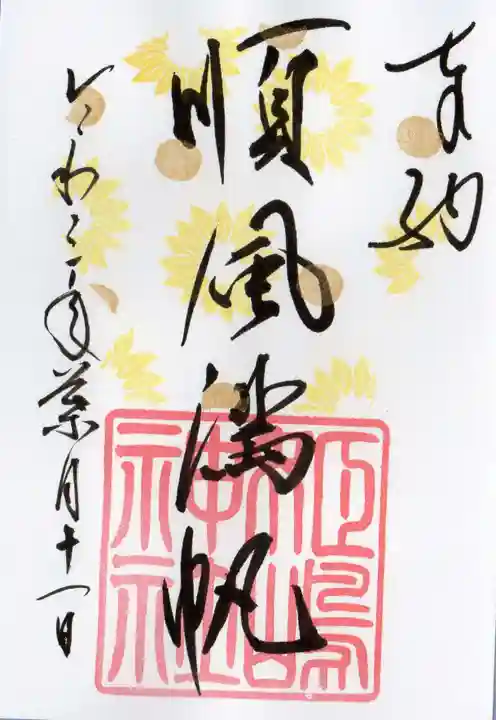 奉納
順風満帆
令和三年葉月十一日